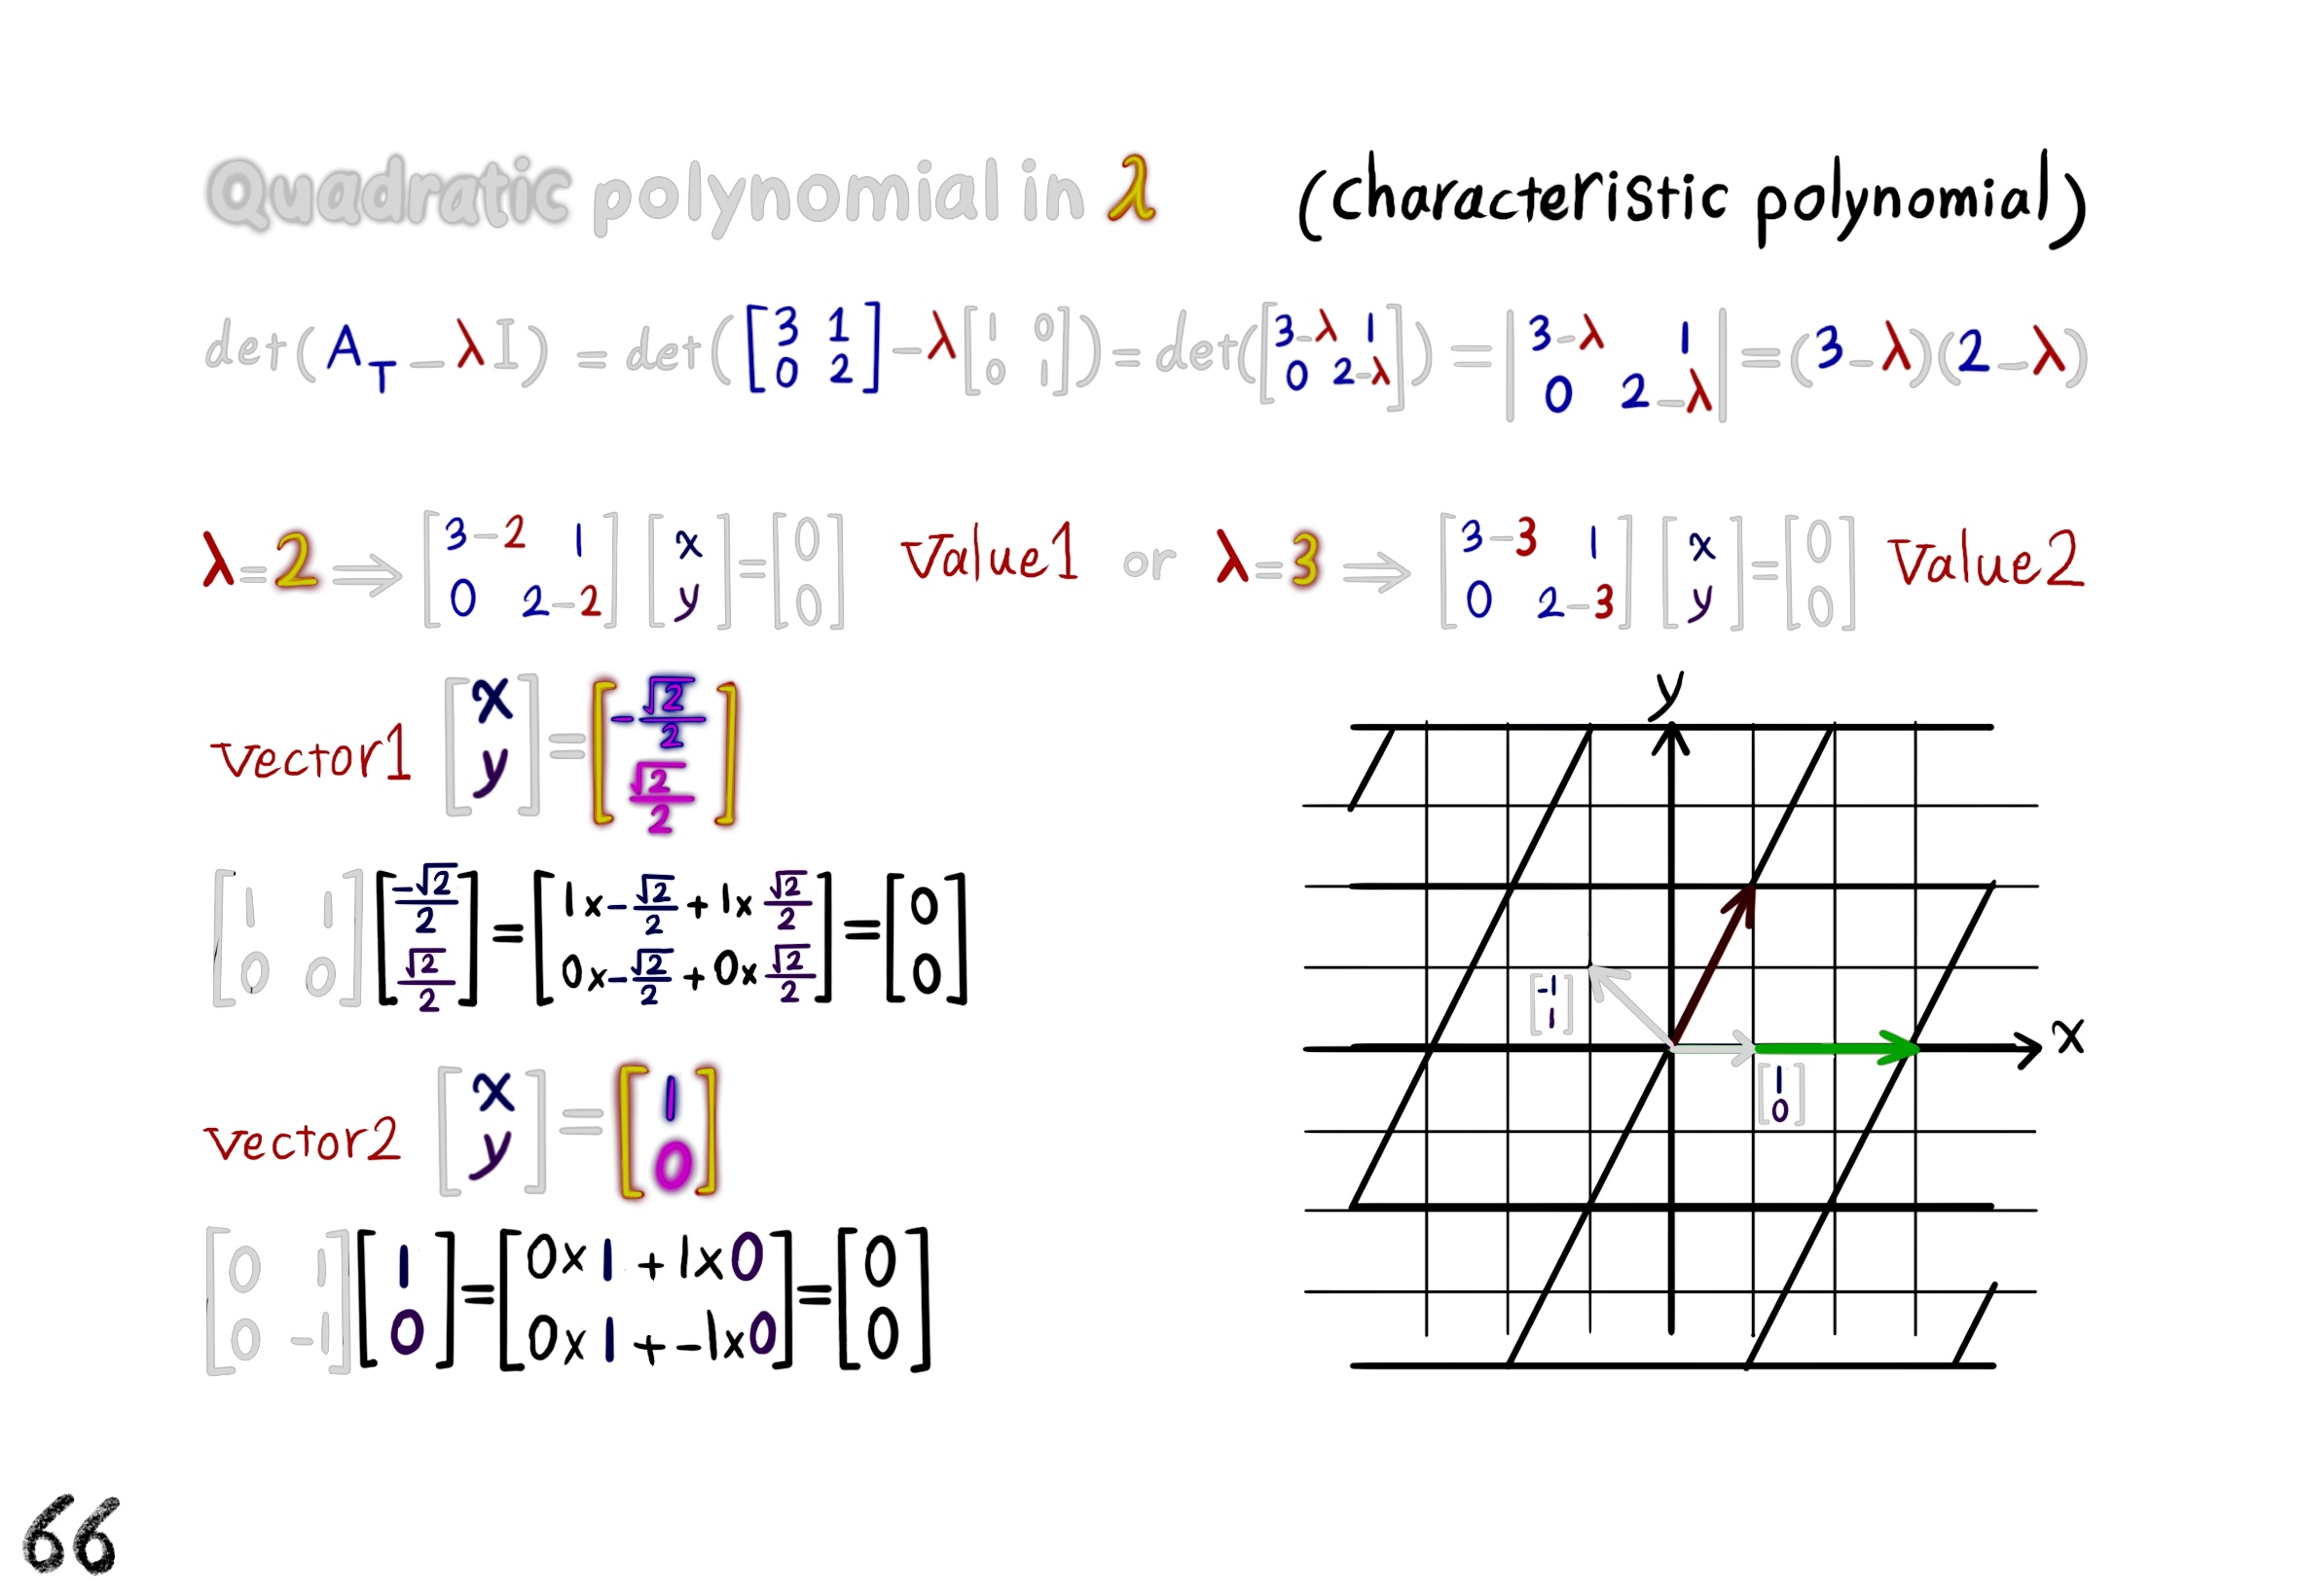 Quadratic polynomial in λ (characteristic polynomial)
det(A_T − λI) = det([3 1; 0 2] − λ[1 0; 0 1]) = det([3−λ 1; 0 2−λ]) = |3−λ 1; 0 2−λ| = (3−λ)(2−λ)
λ=2 ⇒ [3−2 1; 0 2−2] [x; y] = [0; 0] Value1 or λ=3 ⇒ [3−3 1; 0 2−3] [x; y] = [0; 0] Value2
vector1 [x; y] = [−√2/2; √2/2]
[1 1; 0 0] [−√2/2; √2/2] = [1x−√2/2 + 1x √2/2; 0x−√2/2 + 0x √2/2] = [0; 0]
vector2 [x; y] = [1; 0]
[0 1; 0 −1] [1; 0] = [0x1 + 1x0; 0x1 + −1x0] = [0; 0]
y
[-1; 1]
x
[1; 0]
66